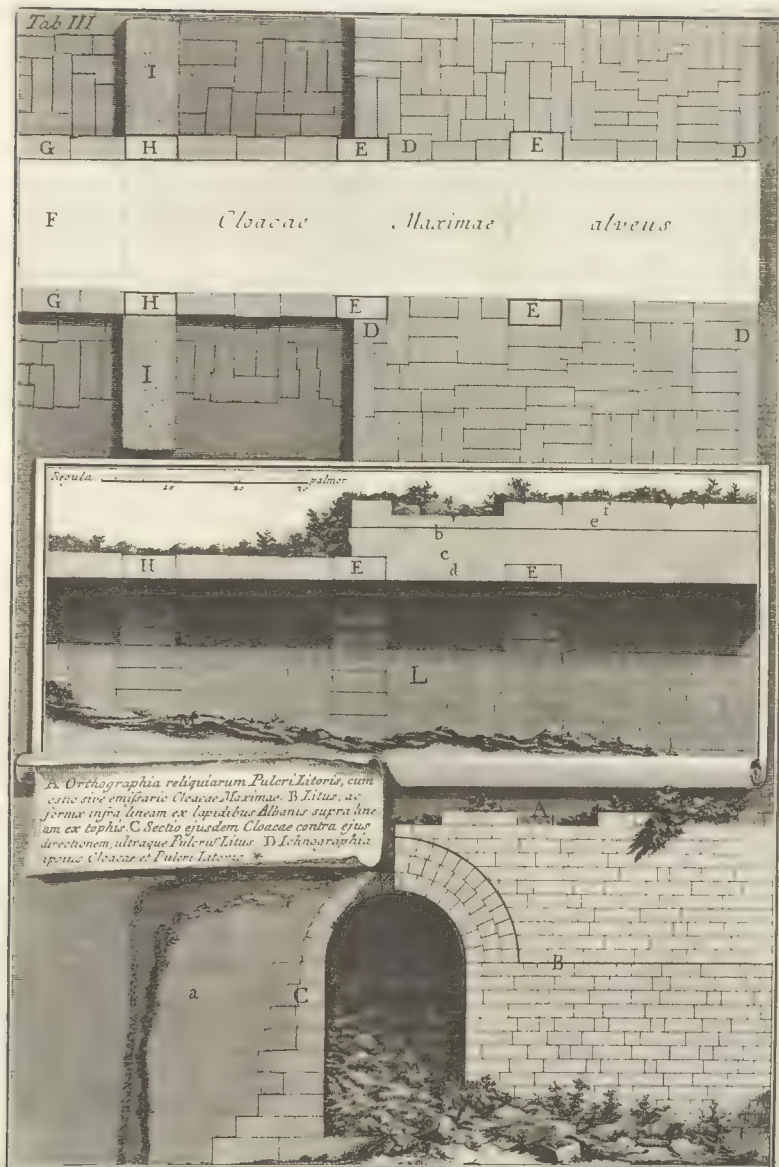 Tab III
I
G H E D E D
F Cloacae Maximae alveus
G H E E
D D
I
Regula 10 20 30 palmor
f
e
b
c
H E d E
L
M
A Orthographia reliquiarum Pulcri Litoris, cum
ostio sive emissario Cloacae Maximae. B Litus, ac
formae infra lineam ex lapidibus Albanis supra line
am ex tophis. C Sectio ejusdem Cloacae contra ejus
directionem, ultraque Pulcrum Litus D Ichnographia
ipsius Cloacae et Pulcri Litoris
A
B
a C
M